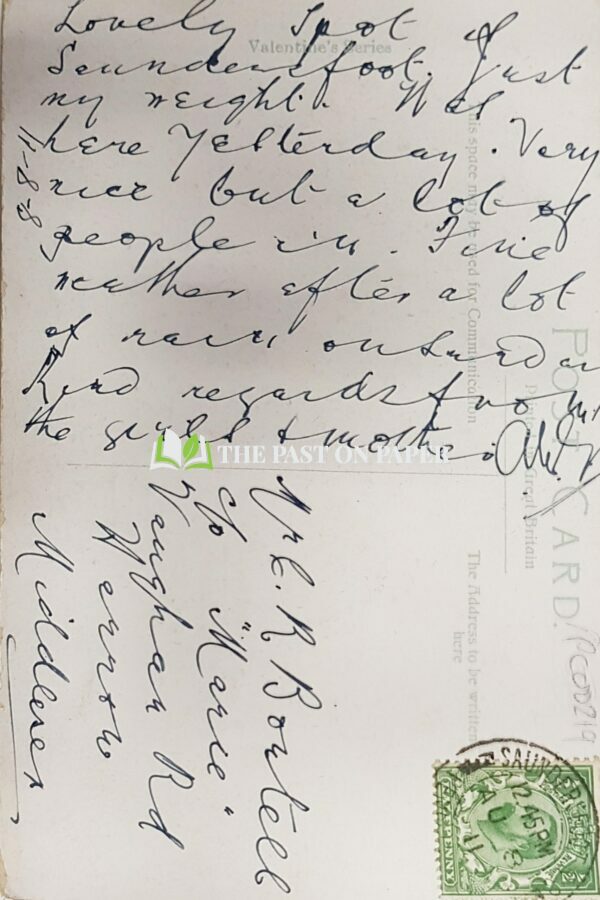 Lovely Spot of
Valentine's Series
Saundersfoot. Just
my weight. Was
here Yesterday. Very
nice but a lot of
people in. Fine
weather after a lot
of rain
Kind regards from
the girls & mother
11-8-
This space may be used for Communication
POST CARD.
Printed in Great Britain
The Address to be written
here
THE PAST ON PAPER
Mr L. R Boutell
c/o "Marie"
Vaughan Rd
Harrow
Middlesex
PC000219
SAUNDERSF
12.45PM
AU
11
HALFPENNY